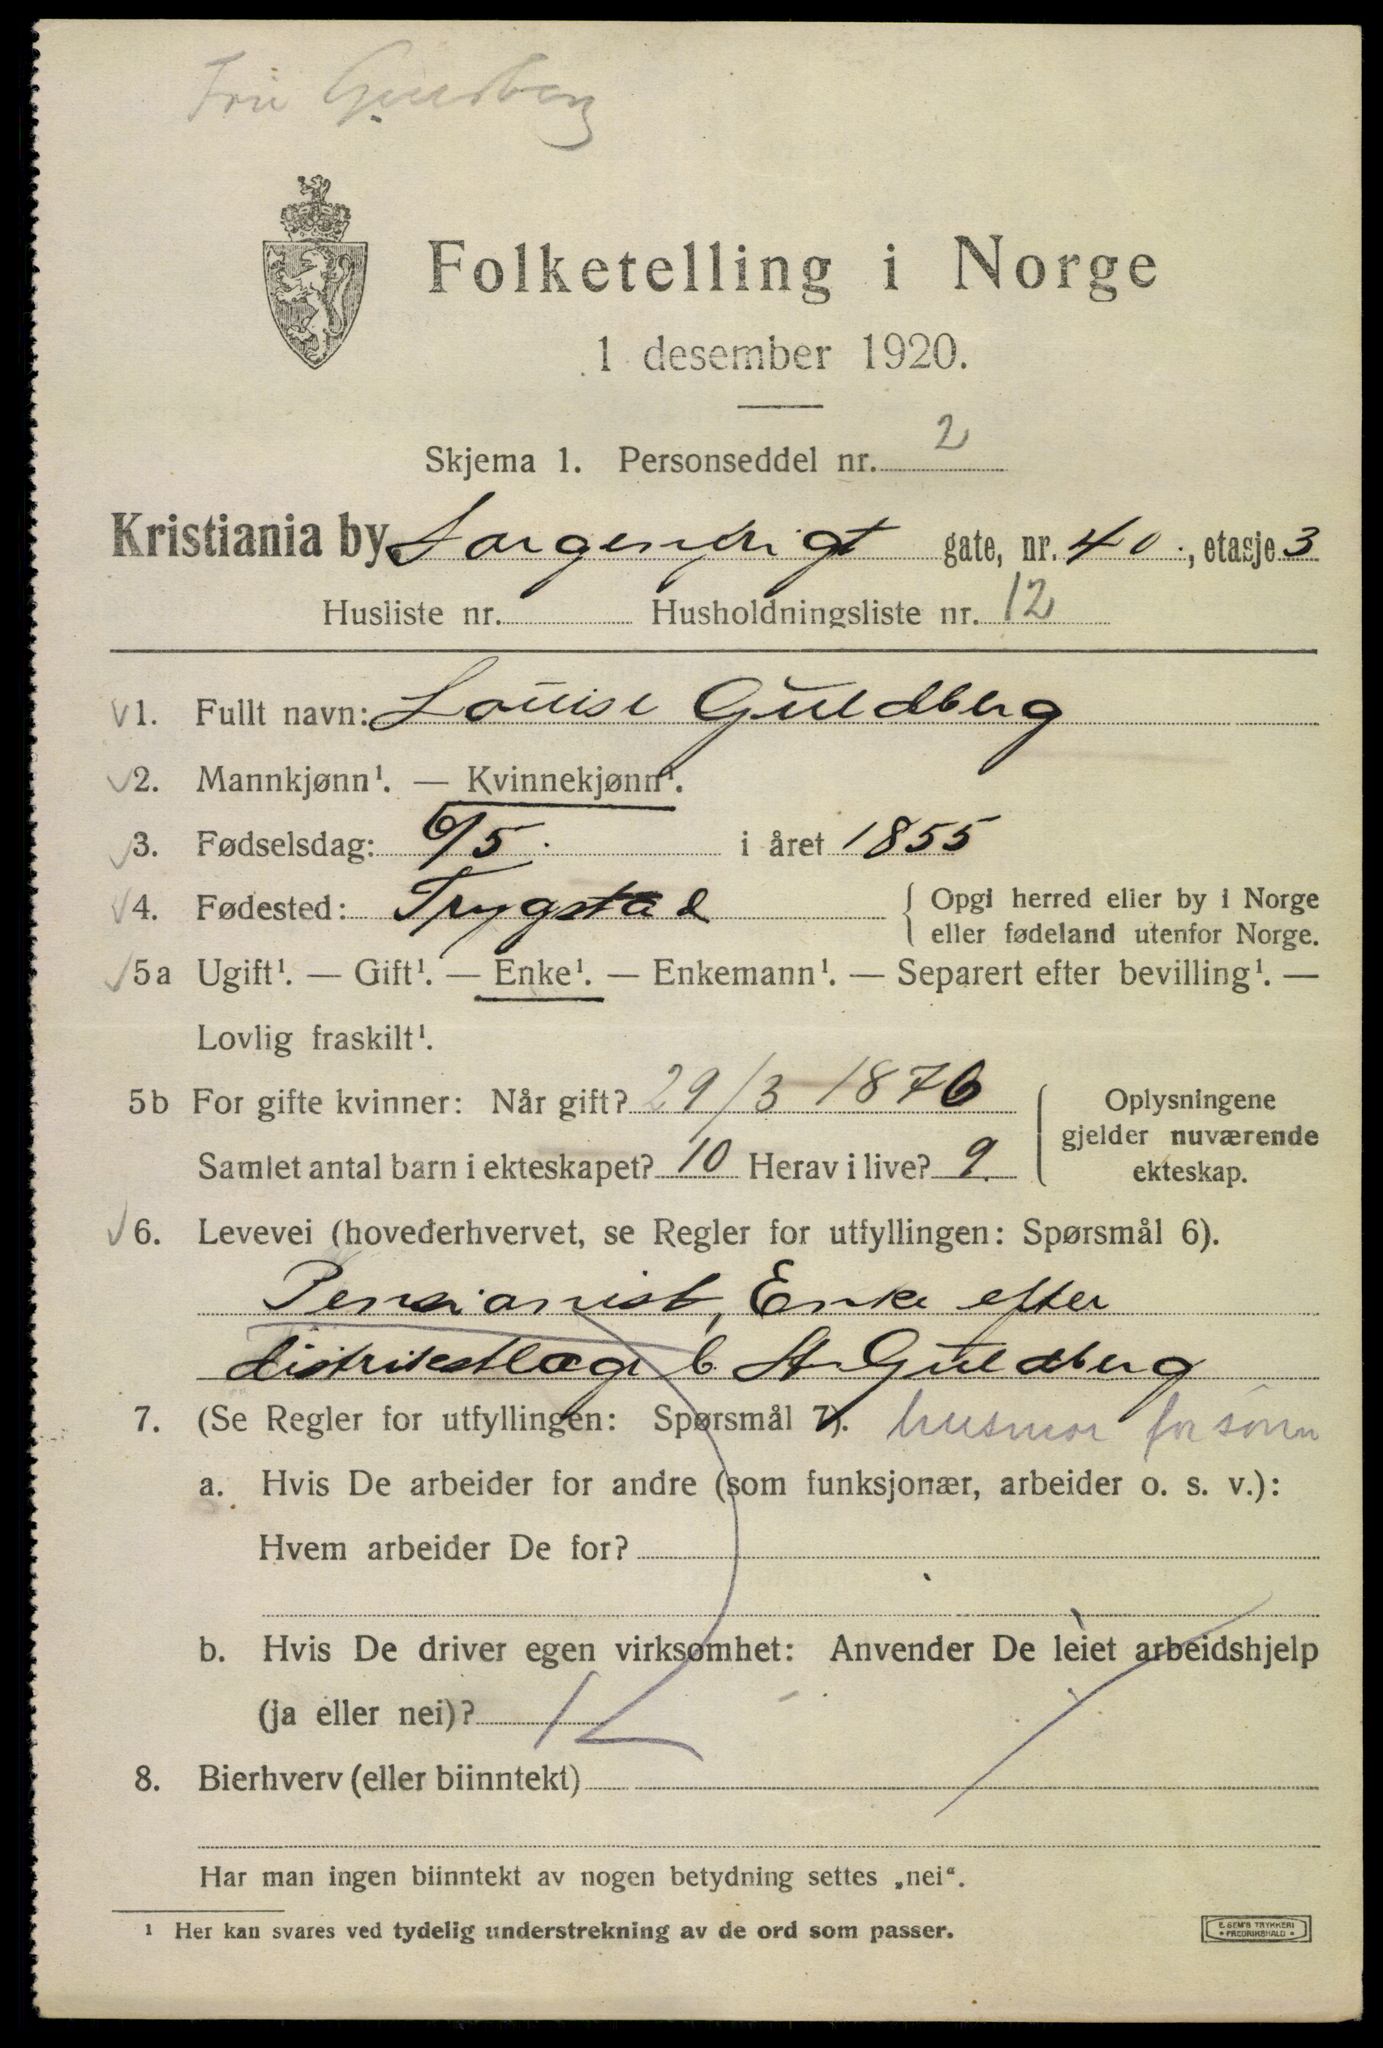 Fru Guldberg
Folketelling i Norge
1 desember 1920.
Skjema 1. Personseddel nr. 2
Kristiania by Sorgenfrigt gate, nr. 40., etasje 3
Husliste nr. Husholdningsliste nr. 12
√1. Fullt navn: Louise Guldberg
√2. Mannkjønn¹. — Kvinnekjønn¹.
√3. Fødselsdag: 6/5. i året 1855
√4. Fødested: Trygstad { Opgi herred eller by i Norge
eller fødeland utenfor Norge.
√5a Ugift¹. — Gift¹. — Enke¹. — Enkemann¹. — Separert efter bevilling¹. —
Lovlig fraskilt¹.
5b For gifte kvinner: Når gift? 29/3 1876
Samlet antal barn i ekteskapet? 10 Herav i live? 9.
Oplysningene
gjelder nuværende
ekteskap.
√6. Levevei (hovederhvervet, se Regler for utfyllingen: Spørsmål 6).
Pensionist, Enke efter
distriktslæge C. St Guldberg
7. (Se Regler for utfyllingen: Spørsmål 7). husmor for sønn
a. Hvis De arbeider for andre (som funksjonær, arbeider o. s. v.):
Hvem arbeider De for?
b. Hvis De driver egen virksomhet: Anvender De leiet arbeidshjelp
(ja eller nei)?
8. Bierhverv (eller biinntekt)
Har man ingen biinntekt av nogen betydning settes „nei“.
¹ Her kan svares ved tydelig understrekning av de ord som passer.
E. SEM'S TRYKKERI
• FREDRIKSHALD •